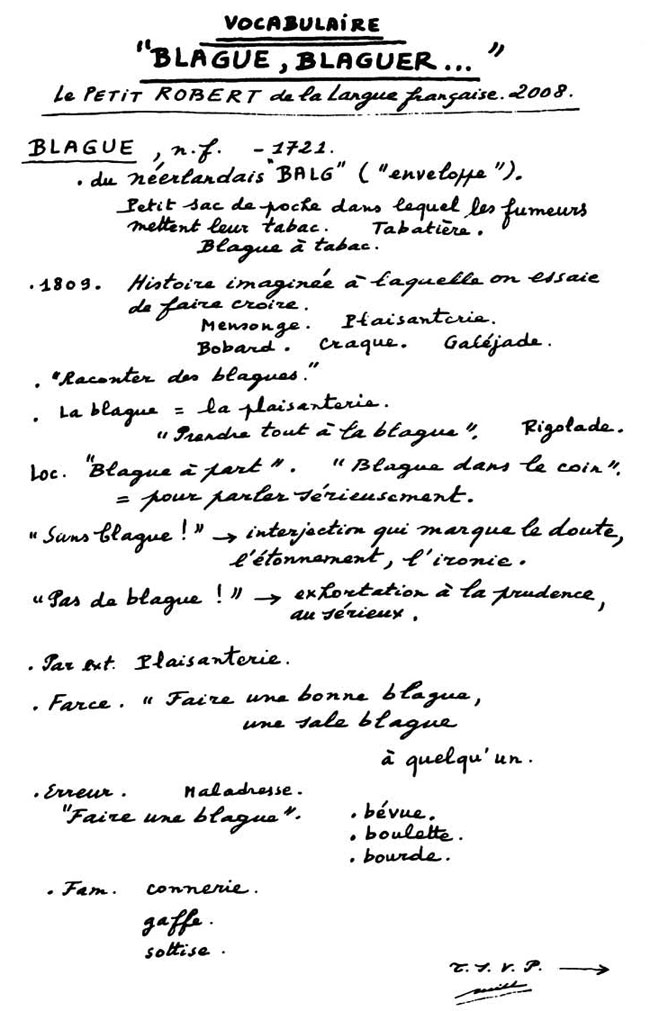 VOCABULAIRE
"BLAGUE, BLAGUER..."
Le PETIT ROBERT de la Langue française. 2008.
BLAGUE, n.f. - 1721.
. du néerlandais "BALG" ("enveloppe").
Petit sac de poche dans lequel les fumeurs
mettent leur tabac. Tabatière.
Blague à tabac.
. 1809. Histoire imaginée à laquelle on essaie
de faire croire.
Mensonge. Plaisanterie.
Bobard. Craque. Galéjade.
. "Raconter des blagues."
. La blague = la plaisanterie.
"Prendre tout à la blague". Rigolade.
Loc. "Blague à part". "Blague dans le coin".
= pour parler sérieusement.
"Sans blague !" → interjection qui marque le doute,
l'étonnement, l'ironie.
"Pas de blague !" → exhortation à la prudence,
au sérieux.
. Par ext. Plaisanterie.
. Farce. "Faire une bonne blague,
une sale blague
à quelqu'un.
. Erreur. Maladresse.
"Faire une blague". . bévue.
. boulette.
. bourde.
. Fam. connerie.
gaffe.
sottise.
T. S. V. P. →